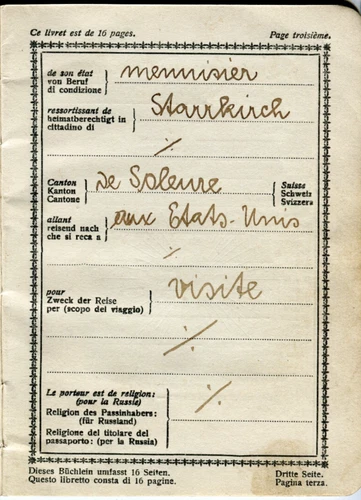 Ce livret est de 16 pages. Page troisième.
de son état
von Beruf
di condizione
mennisier
ressortissant de
heimatberechtigt in
cittadino di
Starrkirch
%
Canton
Kanton
Cantone
de Soleure
Suisse
Schweiz
Svizzera
allant
reisend nach
che si reca a
aux Etats-Unis
%
pour
Zweck der Reise
per (scopo dei viaggio)
visite
%
Le porteur est de religion:
(pour la Russie)
Religion des Passinhabers:
(für Russland)
Religione del titolare del
passaporto: (per la Russia)
%
Dieses Büchlein umfasst 16 Seiten. Dritte Seite.
Questo libretto consta di 16 pagine. Pagina terza.